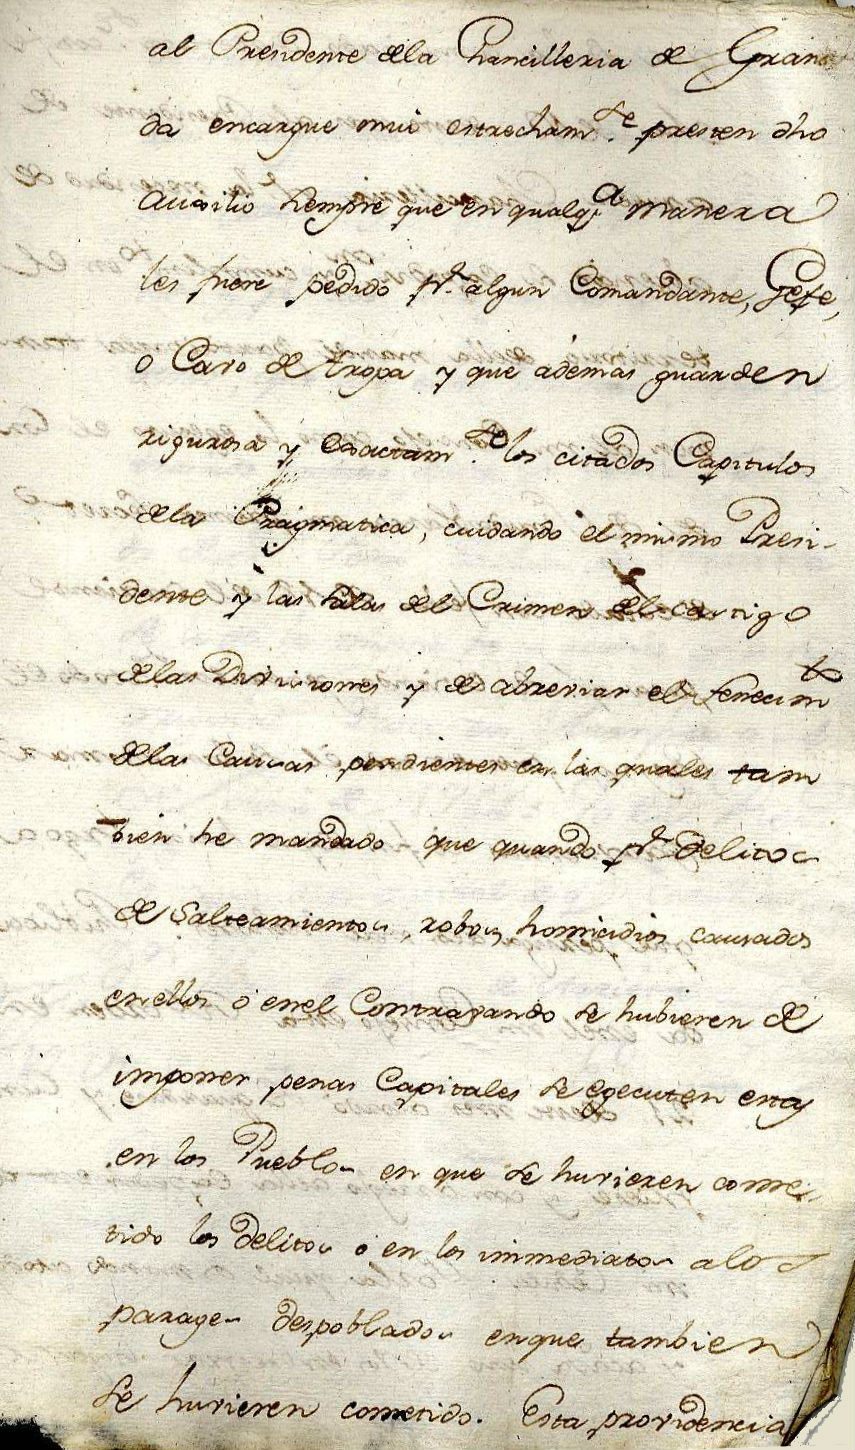 al Presidente dela Chancilleria de Grana
da encargue mui estrecham.te presten dho
auxilio siempre que en qualq.a manera
les fuere pedido p.r algun Comandante, Gefe,
o Cavo de tropa y que ademas guarden
rigurosa y exactam.te los citados Capitulos
dela Pragmatica, cuidando el mismo Presi-
dente y las salas del Crimen del castigo
delas Diviciones y de abreviar el fenecim.to
delas Causas pendientes en las quales tam
bien he mandado que quando p.r delitos
de Salteamientos, robos, homicidios causados
enellos ò enel Contravando se hubieren de
imponer penas Capitales se egecuten estas
en los Pueblos en que se huvieren come-
tido los delitos ò en los inmediatos a los
parages despoblados enque tambien
se huvieren cometido. Esta providencia